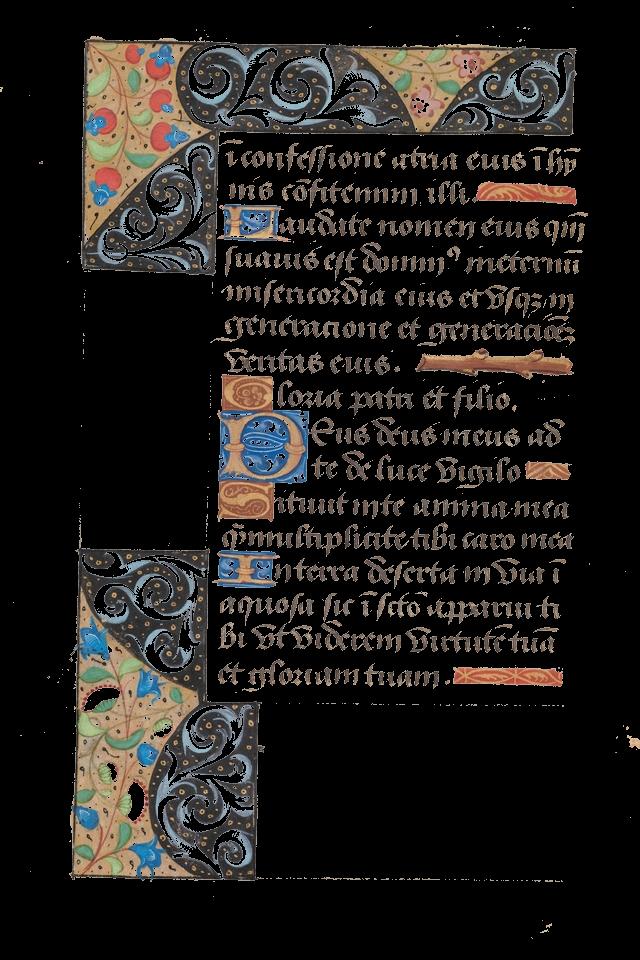 ī confessione atria euis ī hȳ
nis cōfitemini illi.
Laudate nomen euis qm̄
suauis est dominꝰ ineternū
misericordia eius et vsqꝫ in
generacione et generacioēꝫ
veritas euis.
Gloria patri et filio.
Deus deus meus ad
te de luce vigilo
Sitiuit inte anima mea
q̄multipliciter tibi caro mea
Interra deserta in via ī
aquosa sic ī scto apparui ti
bi vt viderem virtutē tuā
et gloriam tuam.